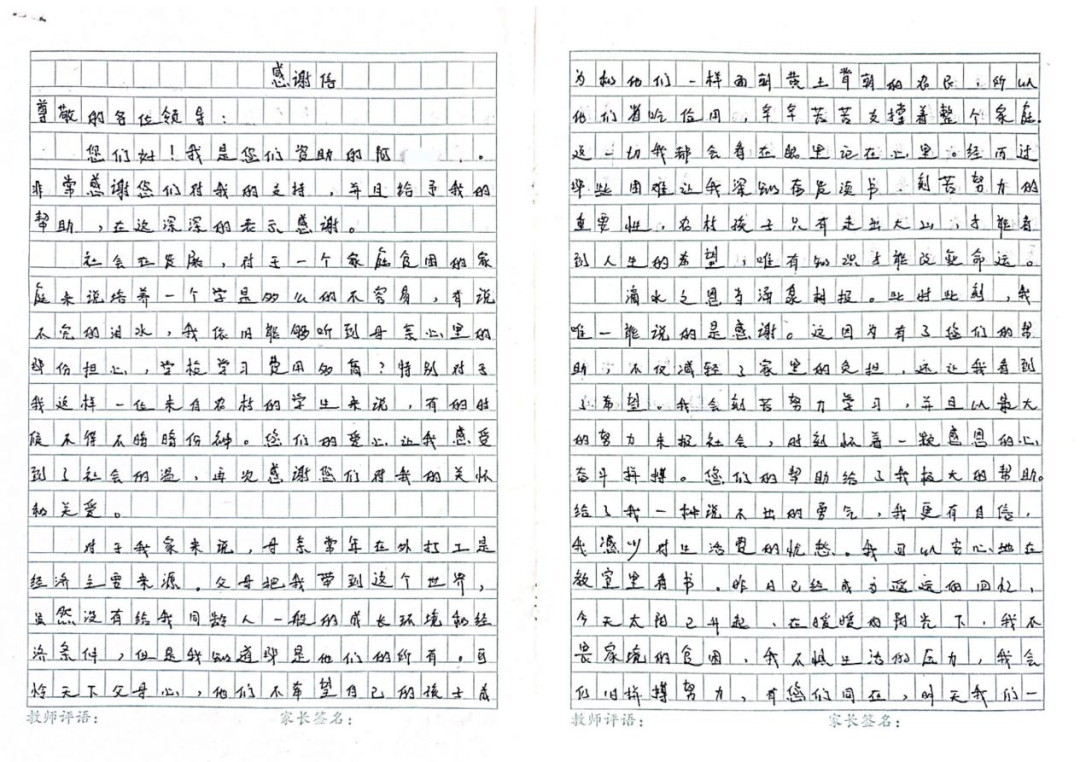 感谢信
尊敬的各位领导：
您们好！我是您们资助的阿。
非常感谢您们对我的支持，并且给予我的
帮助，在这深深的表示感谢。
社会在发展，对于一个家庭贫困的家
庭来说培养一个学是多么的不容易，有说
不完的泪水，我依旧能够听到母亲心里的
那份担心，学校学习费用多高？特别对于
我这样一位来自农村的学生来说，有的时
候不得不暗暗伤神。您们的爱心让我感受
到了社会的温，再次感谢您们对我的关怀
和关爱。
对于我家来说，母亲常年在外打工是
经济主要来源。父母把我带到这个世界，
虽然没有给我同龄人一般的成长环境和经
济条件，但是我知道那是他们的所有。可
怜天下父母心，他们不希望自己的孩子成
教师评语：
家长签名：
为和他们一样面朝黄土背朝的农民，所以
他们省吃俭用，辛辛苦苦支撑着整个家庭.
这一切我都会看在眼里记在心里。经历过
那些困难让我深知奋发读书，刻苦努力的
重要性，农村孩子只有走出大山，才能看
到人生的希望，唯有知识才能改变命运。
滴水之恩当涌泉相报。此时此刻，我
唯一能说的是感谢。这因为有了您们的帮
助，不仅减轻了家里的负担，还让我看到
了希望。我会刻苦努力学习，并且以最大
的努力来报社会，时刻怀着一颗感恩的心，
奋斗拼搏。您们的帮助给了我极大的帮助。
给了我一种说不出的勇气，我更有自信，
我减少对生活费的忧愁。我可以安心地在
教室里看书。昨日已经成为遥远的回忆，
今天太阳已升起，在暖暖的阳光下，我不
畏家境的贫困，我不惧生活的压力，我会
仍旧拼搏努力，有您们同在，明天我们一
教师评语：
家长签名：